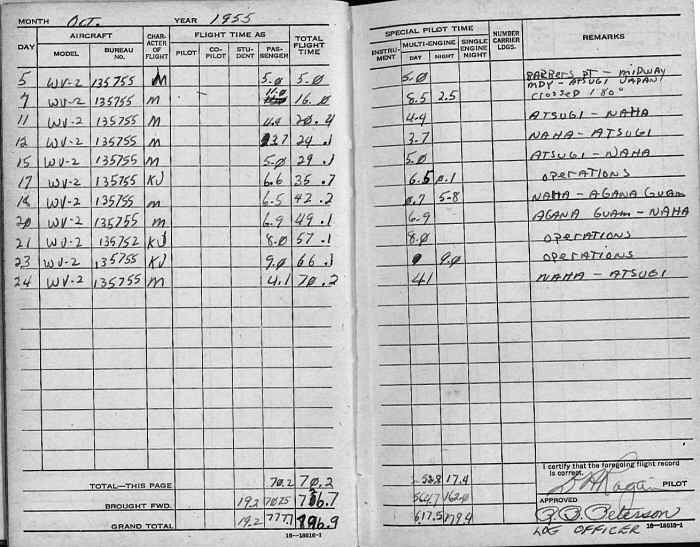 MONTH Oct. YEAR 1955
DAY AIRCRAFT CHARACTER OF FLIGHT FLIGHT TIME AS TOTAL FLIGHT TIME
MODEL BUREAU NO. PILOT CO-PILOT STUDENT PASSENGER
5 WV-2 135755 M 5.0 5.0
7 WV-2 135755 M 11.0 16.0
11 WV-2 135755 M 4.4 20.4
12 WV-2 135755 M 3.7 24.1
15 WV-2 135755 M 5.0 29.1
17 WV-2 135755 KJ 6.6 35.7
18 WV-2 135755 M 6.5 42.2
20 WV-2 135755 M 6.9 49.1
21 WV-2 135752 KJ 8.0 57.1
23 WV-2 135755 KJ 9.0 66.1
24 WV-2 135755 M 4.1 70.2
TOTAL—THIS PAGE 70.2 70.2
BROUGHT FWD. 19.2 707.5
GRAND TOTAL 19.2 777.7
16—18016-1
SPECIAL PILOT TIME NUMBER CARRIER LDGS. REMARKS
INSTRUMENT MULTI-ENGINE SINGLE ENGINE NIGHT
DAY NIGHT
5.0 BARBERS PT - MIDWAY
MDY - ATSUGI JAPAN
8.5 2.5 CROSSED 180°
4.4 ATSUGI - NAHA
3.7 NAHA - ATSUGI
5.0 ATSUGI - NAHA
6.5 0.1 OPERATIONS
0.7 5.8 NAHA - AGANA GUAM
6.9 AGANA GUAM - NAHA
8.0 OPERATIONS
9.0 OPERATIONS
4.1 NAHA - ATSUGI
I certify that the foregoing flight record is correct.
52.8 17.4 PILOT
564.7 162.0 APPROVED
617.5 179.4 Peterson
LOG OFFICER
16—18016-1